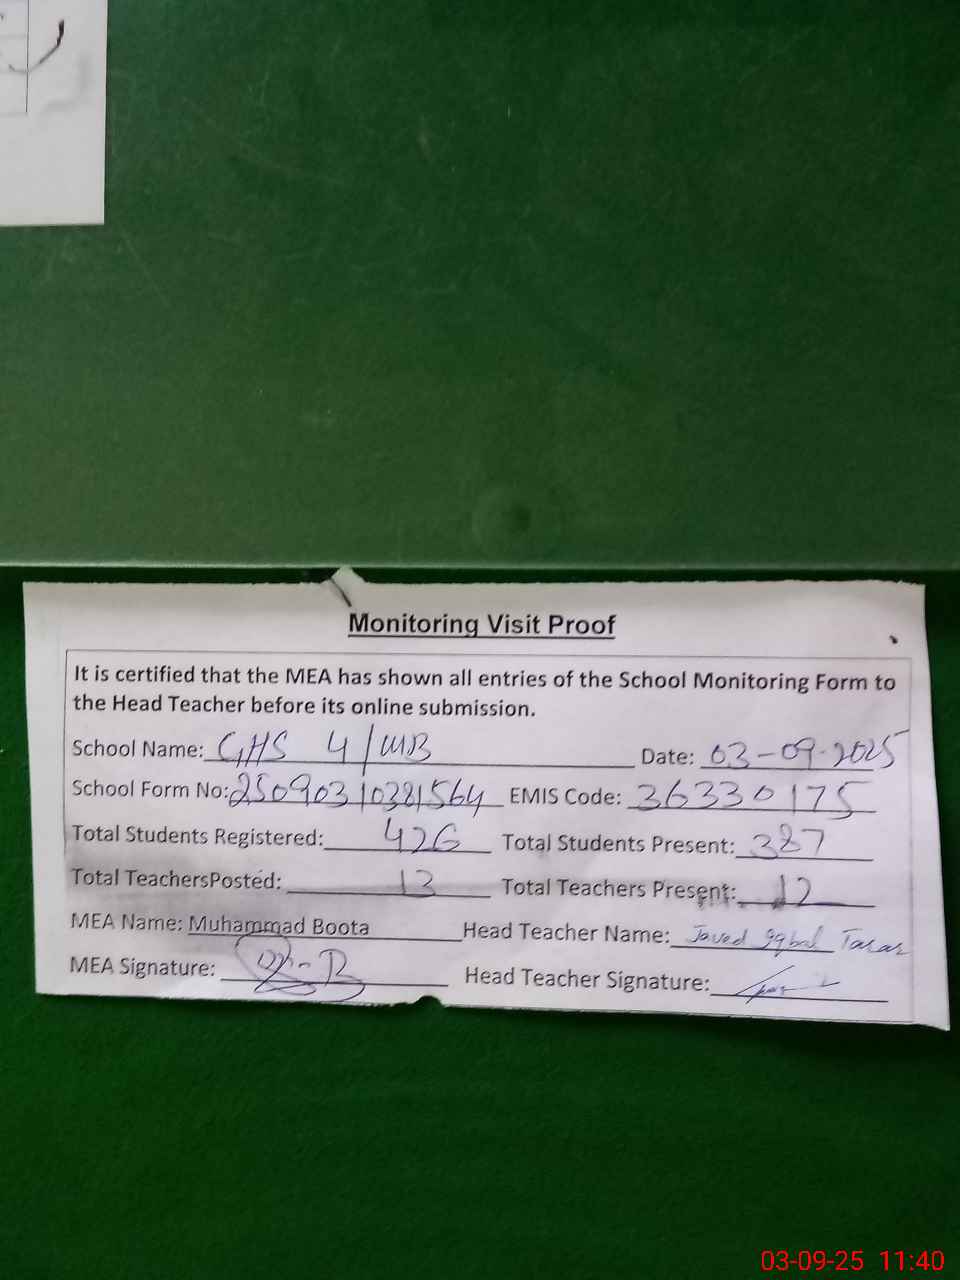 Monitoring Visit Proof
It is certified that the MEA has shown all entries of the School Monitoring Form to
the Head Teacher before its online submission.
School Name: GHS 4/MB Date: 03-09-2025
School Form No: 25090310381564 EMIS Code: 36330175
Total Students Registered: 426 Total Students Present: 387
Total TeachersPosted: 13 Total Teachers Present: 12
MEA Name: Muhammad Boota Head Teacher Name: Javed Iqbal
MEA Signature: Head Teacher Signature:
03-09-25 11:40